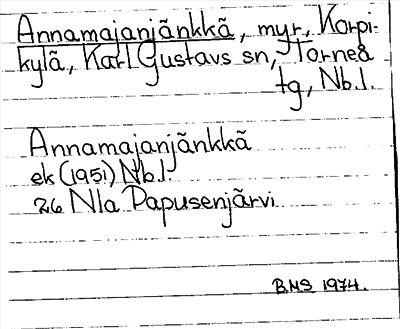 Annamajanjänkkä, myr, Korpi-
kylä, Karl Gustavs sn, Torneå
tg, Nb.l.
Annamajanjänkkä
ek (1951) Nb.l.
26 Nla Papusenjärvi
B.M.S 1974.